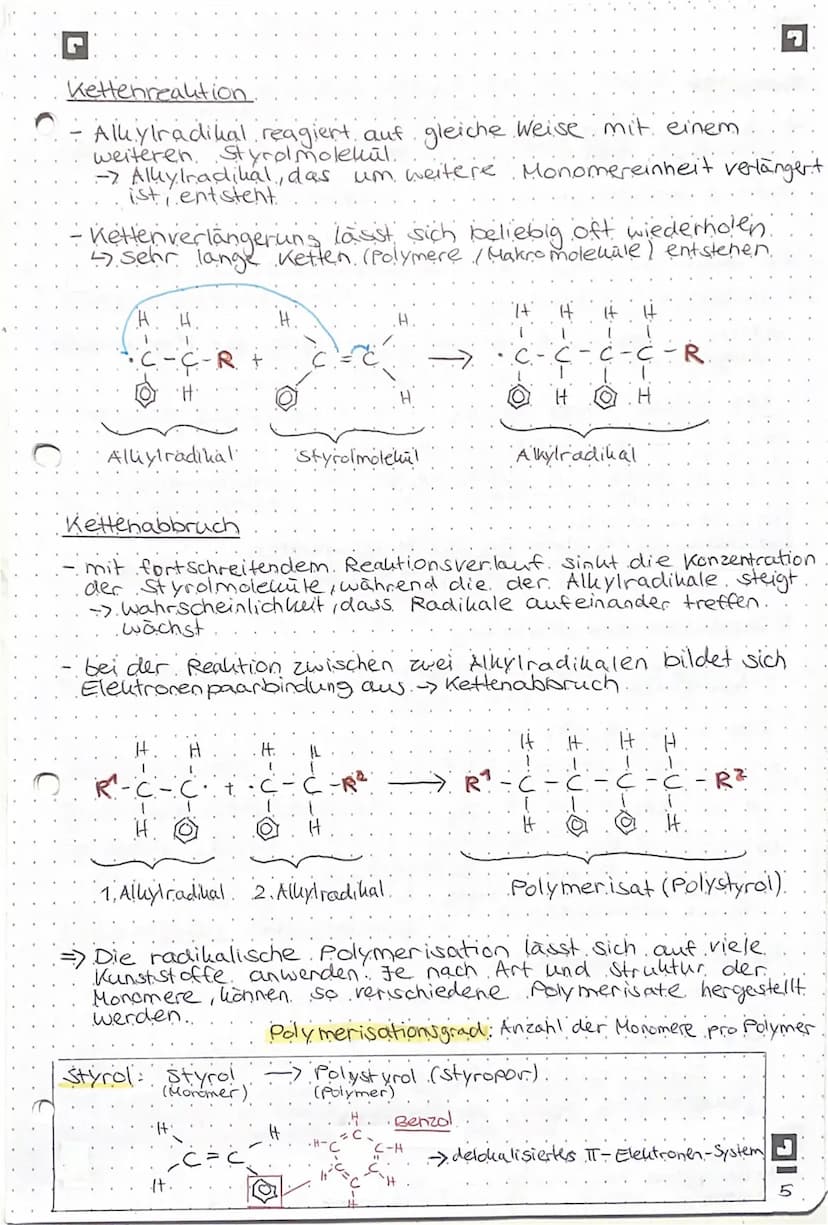 Kettenreaktion
- Alkylradikal reagiert auf gleiche Weise mit einem
weiteren Styrolmolekül.
-> Alkylradikal, das um weitere Monomereinheit verlängert
ist, entsteht
- Kettenverlängerung lässt sich beliebig oft wiederholen.
↳ sehr lange Ketten (Polymere / Makromoleküle) entstehen
H H H H H H H H
·C - C - R + C = C → ·C - C - C - C - R
H H H H
Alkylradikal Styrolmolekül Alkylradikal
Kettenabbruch
- mit fortschreitendem Reaktionsverlauf sinkt die Konzentration
der Styrolmoleküle, während die der Alkylradikale steigt
-> Wahrscheinlichkeit, dass Radikale aufeinander treffen
wächst
- bei der Reaktion zwischen zwei Alkylradikalen bildet sich
Elektronenpaarbindung aus -> Kettenabbruch
H H H H H H H H
R¹ - C - C· + ·C - C - R² → R¹ - C - C - C - C - R²
H H H H
1. Alkylradikal 2. Alkylradikal Polymerisat (Polystyrol)
=> Die radikalische Polymerisation lässt sich auf viele
Kunststoffe anwenden. Je nach Art und Struktur der
Monomere, können so verschiedene Polymerisate hergestellt
werden.
Polymerisationsgrad: Anzahl der Monomere pro Polymer
Styrol: Styrol → Polystyrol (Styropor)
(Monomer) (Polymer)
H H H Benzol
C = C H-C C C-H → delokalisiertes π-Elektronen-System
H H C C C H
H
5